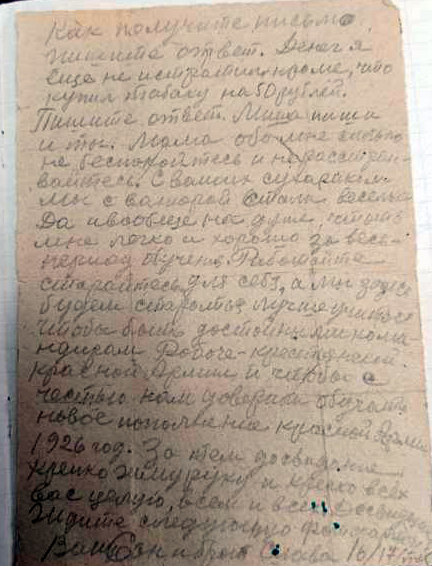 Как получите письмо
пишите ответ. Денег я
еще не истратил кроме, что
купил табаку на 50 рублей.
Пишите ответ. Миша пиши
и ты. Мама обо мне сильно
не беспокойтесь и не расстраи-
вайтесь. С вашими сухарями
мы с Виктором стали веселее
Да и вообще на душе, стало
мне легко и хорошо за весь
период обучения. Работайте
старайтесь, для себя, а мы здесь
будем стараться лучше учиться
чтобы быть достойными кома-
ндирам Рабоче-крестьянской
красной Армии и чтобы с
честью нам доверили обучать
новое пополнение красной Армии
1926 год. За тем досвидание
крепко жму руку и крепко всех
вас целую, всем и всем
Ждите следующую фотокарточку
Ваш Сын и брат Слава 16/17